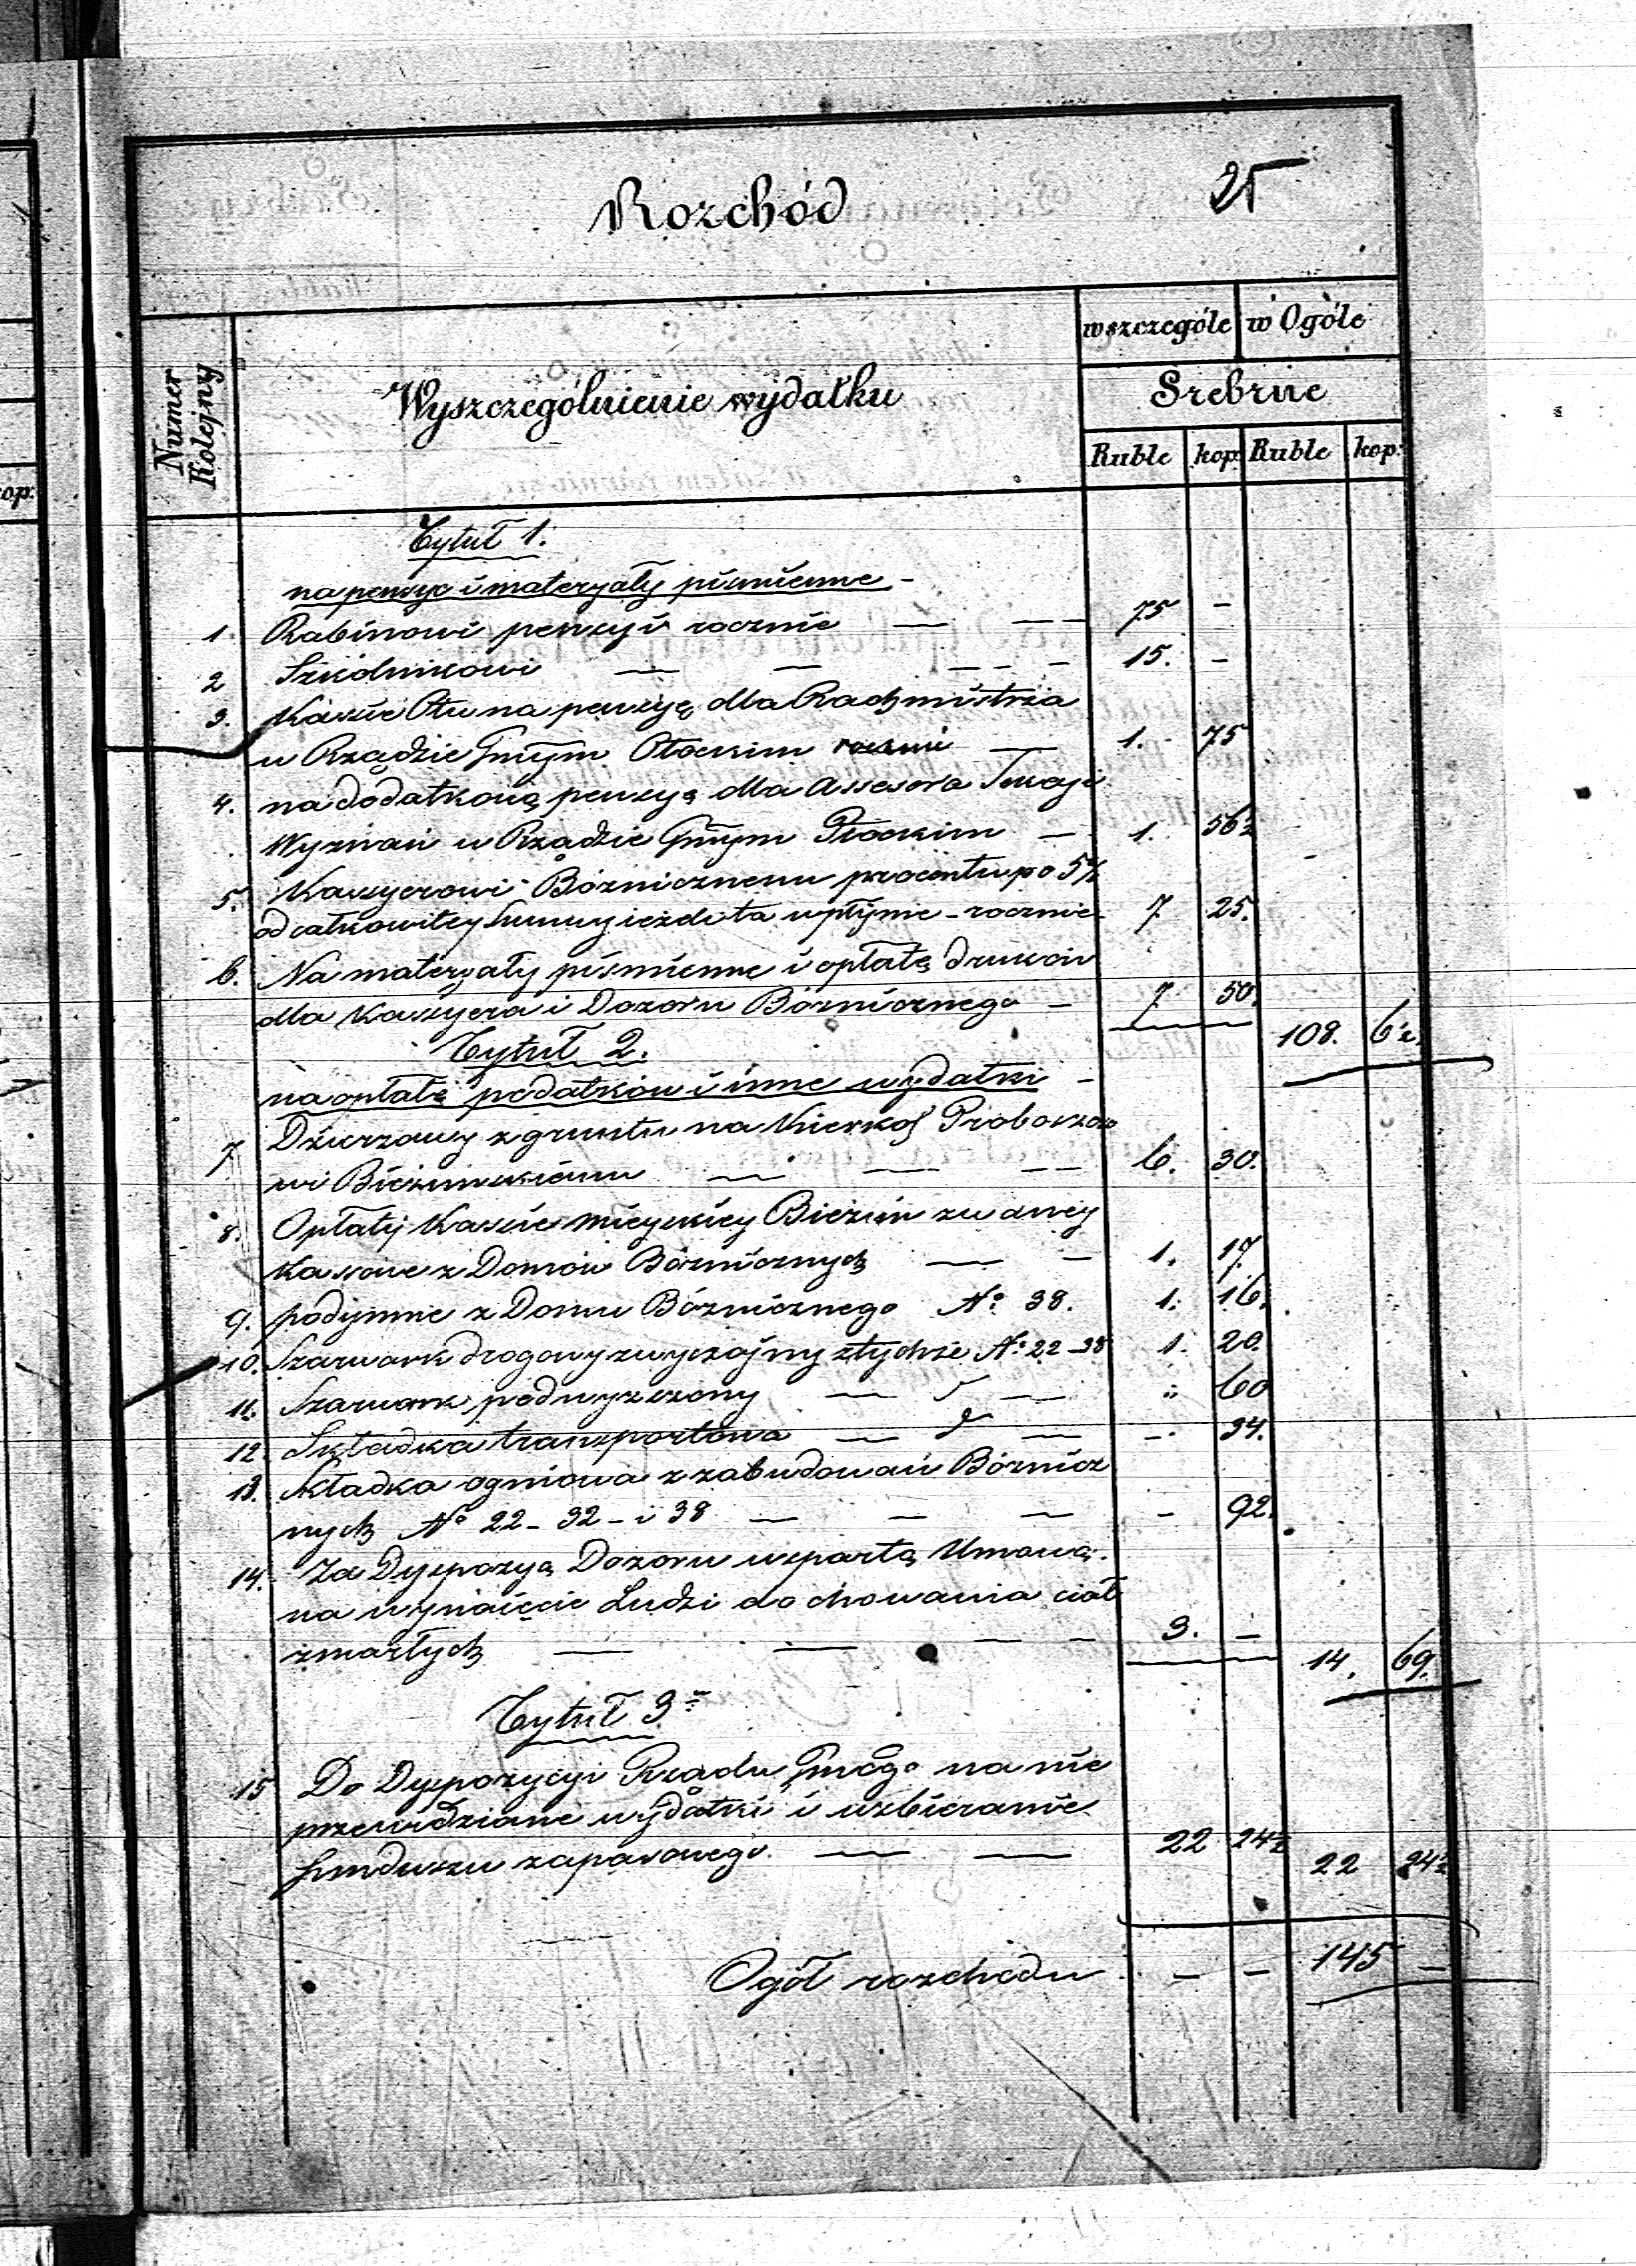 25
Rozchód
Numer Kolejny
Wyszczególnienie wydatku
w szczególe
w Ogóle
Srebrne
Ruble kop: Ruble kop:
Tytuł 1.
na pensye i materyały piśmienne -
1. Rabinowi pensyi rocznie — — — 75 -
2 Szkólnikowi — — — 15. -
3. Kassie na pensyę dla Rachmistrza
w Rządzie Gnym. 1. 75
4. na dodatkową pensyą dla Assesora
Wyznań w Rządzie Gnym Płockim — 1. 56½
5. Kassyerowi Bóżnicznemu procentu po 5%
od całkowitey Summy ieżeli ta wpłynie - rocznie - 7 25.
6. Na materyały piśmienne i opłatę druków
dla Kassyera i Dozoru Bóżnicznego - 7 50.
108. 6½
Tytuł 2.
na opłatę podatków i inne wydatki -
7 Dzierzawy z gruntu na Kierkof Proboszczo
wi Bieżuńskiemu — — — 6. 30.
8. Opłaty Kassie mieyskiey Bieżuń
z Domów Bóżnicznych — - 1. 17.
9. podymne z Domu Bóżnicznego No. 38. 1. 16.
10. Szarwark drogowy zwyczajny z tychże No. 22 - 38 1. 20.
11. Szarwark podwyższony — — " 60
12. Składka transportowa — — -. 34.
13. Składka ogniowa z zabudowań Bóżnicz
nych No 22 - 32 - i 38 — — — - 92.
14. Za Dyspozyą Dozoru wspartą Umową
na wynaięcie Ludzi do chowania ciał
zmarłych — — — - 3. -
14. 69.
Tytuł 3
15 Do Dyspozycyi Rządu Gnego na nie
przewidziane wydatki i uzbieranie
funduszu zapasowego. — — 22 24½ 22 24½
Ogół rozchodu - - 145 -